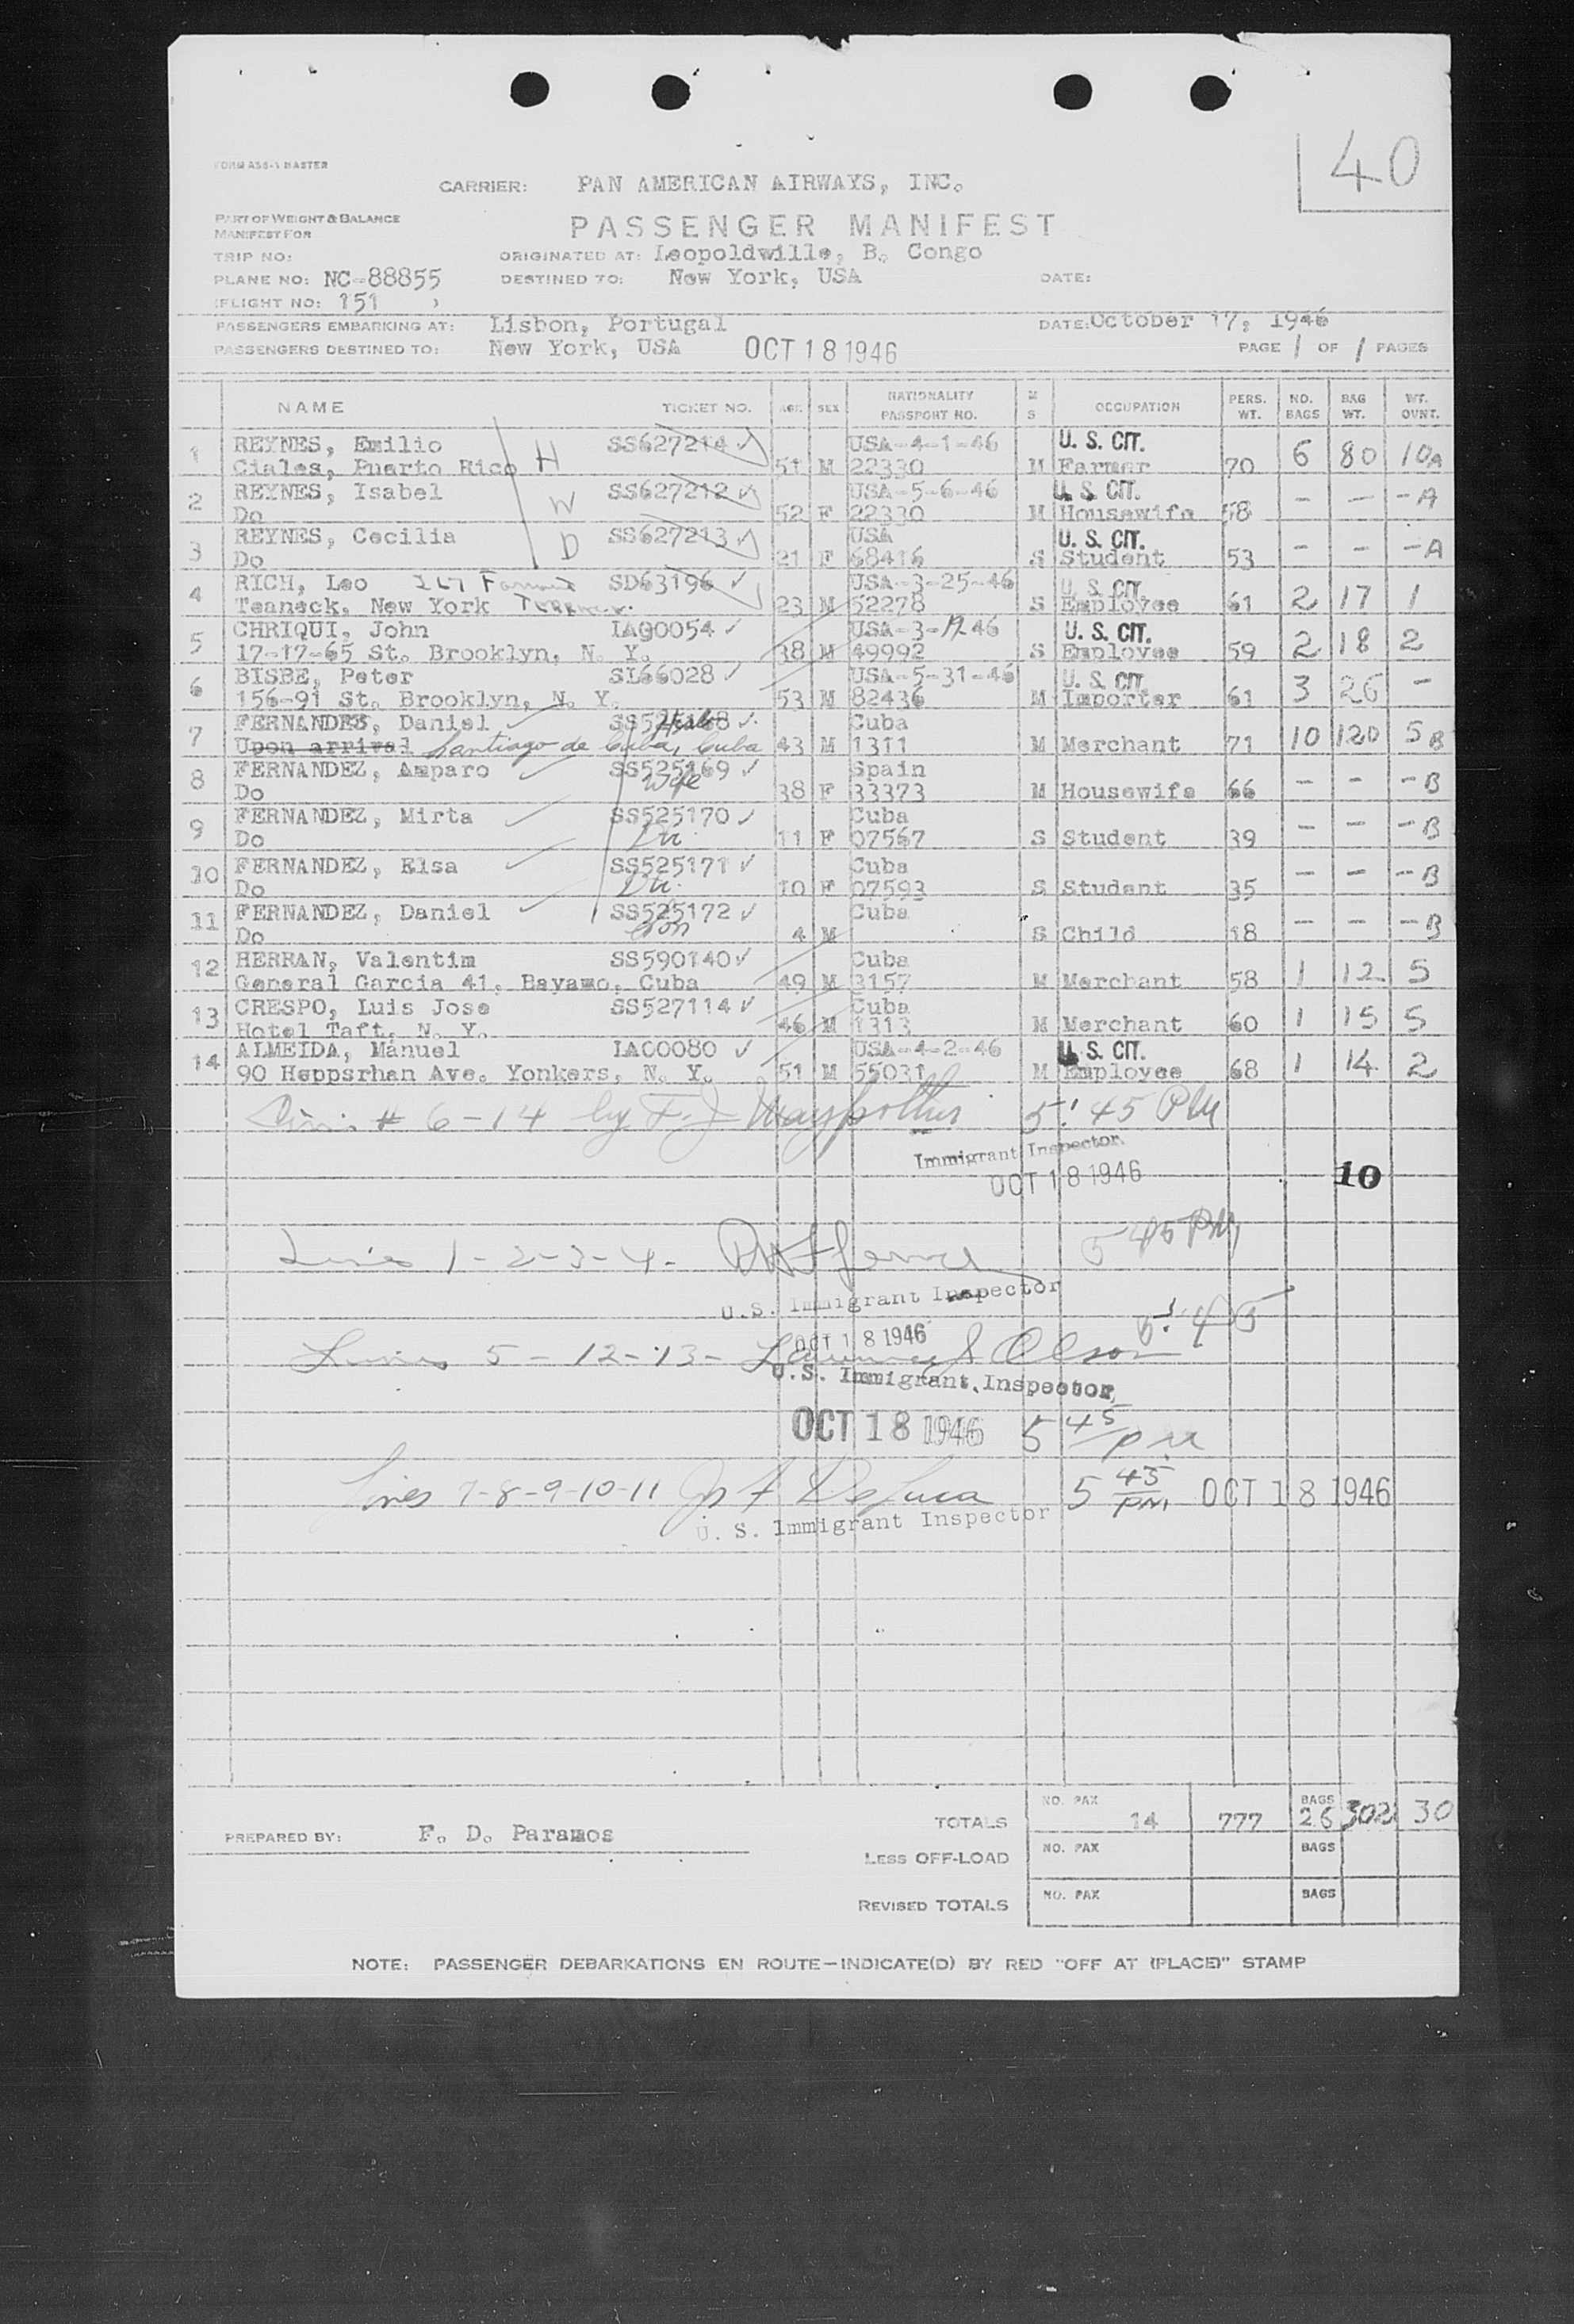 40
FORM ASB-1 MASTER
CARRIER: PAN AMERICAN AIRWAYS, INC.
PART OF WEIGHT & BALANCE
MANIFEST FOR
PASSENGER MANIFEST
TRIP NO: ORIGINATED AT: Leopoldwille, B. Congo
PLANE NO: NC-88855 DESTINED TO: New York, USA DATE:
(FLIGHT NO: 151 )
PASSENGERS EMBARKING AT: Lisbon, Portugal DATE: October 17, 1946
PASSENGERS DESTINED TO: New York, USA OCT 18 1946 PAGE 1 OF 1 PAGES
NAME TICKET NO. AGE SEX NATIONALITY PASSPORT NO. M S OCCUPATION PERS. WT. NO. BAGS BAG WT. WT. OVNT.
1 REYNES, Emilio SS627214 ✓ USA-4-1-46 U. S. CIT.
Ciales, Puerto Rico H 51 M 22330 M Farmer 70 6 80 10A
2 REYNES, Isabel SS627212 ✓ USA-5-6-46 U. S. CIT.
Do W 52 F 22330 M Housewife 58 - - -A
3 REYNES, Cecilia SS627213 ✓ USA U. S. CIT.
Do D 21 F 68416 S Student 53 - - -A
4 RICH, Leo 267 SD63196 ✓ USA-3-25-46 U. S. CIT.
Teaneck, New York 23 M 52278 S Employee 61 2 17 1
5 CHRIQUI, John IAG0054 ✓ USA-3-19-46 U. S. CIT.
17-17-65 St. Brooklyn, N. Y. 38 M 49992 S Employee 59 2 18 2
6 BISBE, Peter SL66028 ✓ USA-5-31-46 U. S. CIT.
156-91 St. Brooklyn, N. Y. 53 M 82436 M Importer 61 3 26 -
7 FERNANDES, Daniel ✓ SS525168 ✓ Cuba
Upon arrival Santiago de Cuba, Cuba 43 M 1311 M Merchant 71 10 120 5B
8 FERNANDEZ, Amparo ✓ SS525169 ✓ Spain
Do Wife 38 F 33373 M Housewife 66 - - -B
9 FERNANDEZ, Mirta ✓ SS525170 ✓ Cuba
Do 11 F 07567 S Student 39 - - -B
10 FERNANDEZ, Elsa ✓ SS525171 ✓ Cuba
Do 10 F 07593 S Student 35 - - -B
11 FERNANDEZ, Daniel ✓ SS525172 ✓ Cuba
Do Son 4 M S Child 18 - - -B
12 HERRAN, Valentim SS590140 ✓ Cuba
General Garcia 41, Bayamo, Cuba 49 M 3157 M Merchant 58 1 12 5
13 CRESPO, Luis Jose SS527114 ✓ Cuba
Hotel Taft, N. Y. 46 M 1313 M Merchant 60 1 15 5
14 ALMEIDA, Manuel IAC0080 ✓ USA-4-2-46 U. S. CIT.
90 Heppsrhan Ave. Yonkers, N. Y. 51 M 55031 M Employee 68 1 14 2
# 6-14 by F. J. 5:45 PM
Immigrant Inspector
OCT 18 1946 10
Lines 1-2-3-4- 5 45 PM
U.S. Immigrant Inspector
OCT 18 1946 5:45
Lines 5-12-13- Olson
U.S. Immigrant Inspector
OCT 18 1946 5 45 PM
Lines 7-8-9-10-11 Jos F DeLuca 5 45 PM OCT 18 1946
U. S. Immigrant Inspector
TOTALS NO. PAX 14 777 BAGS 26 302 30
PREPARED BY: F. D. Paramos
LESS OFF-LOAD NO. PAX BAGS
REVISED TOTALS NO. PAX BAGS
NOTE: PASSENGER DEBARKATIONS EN ROUTE—INDICATE(D) BY RED "OFF AT (PLACE)" STAMP